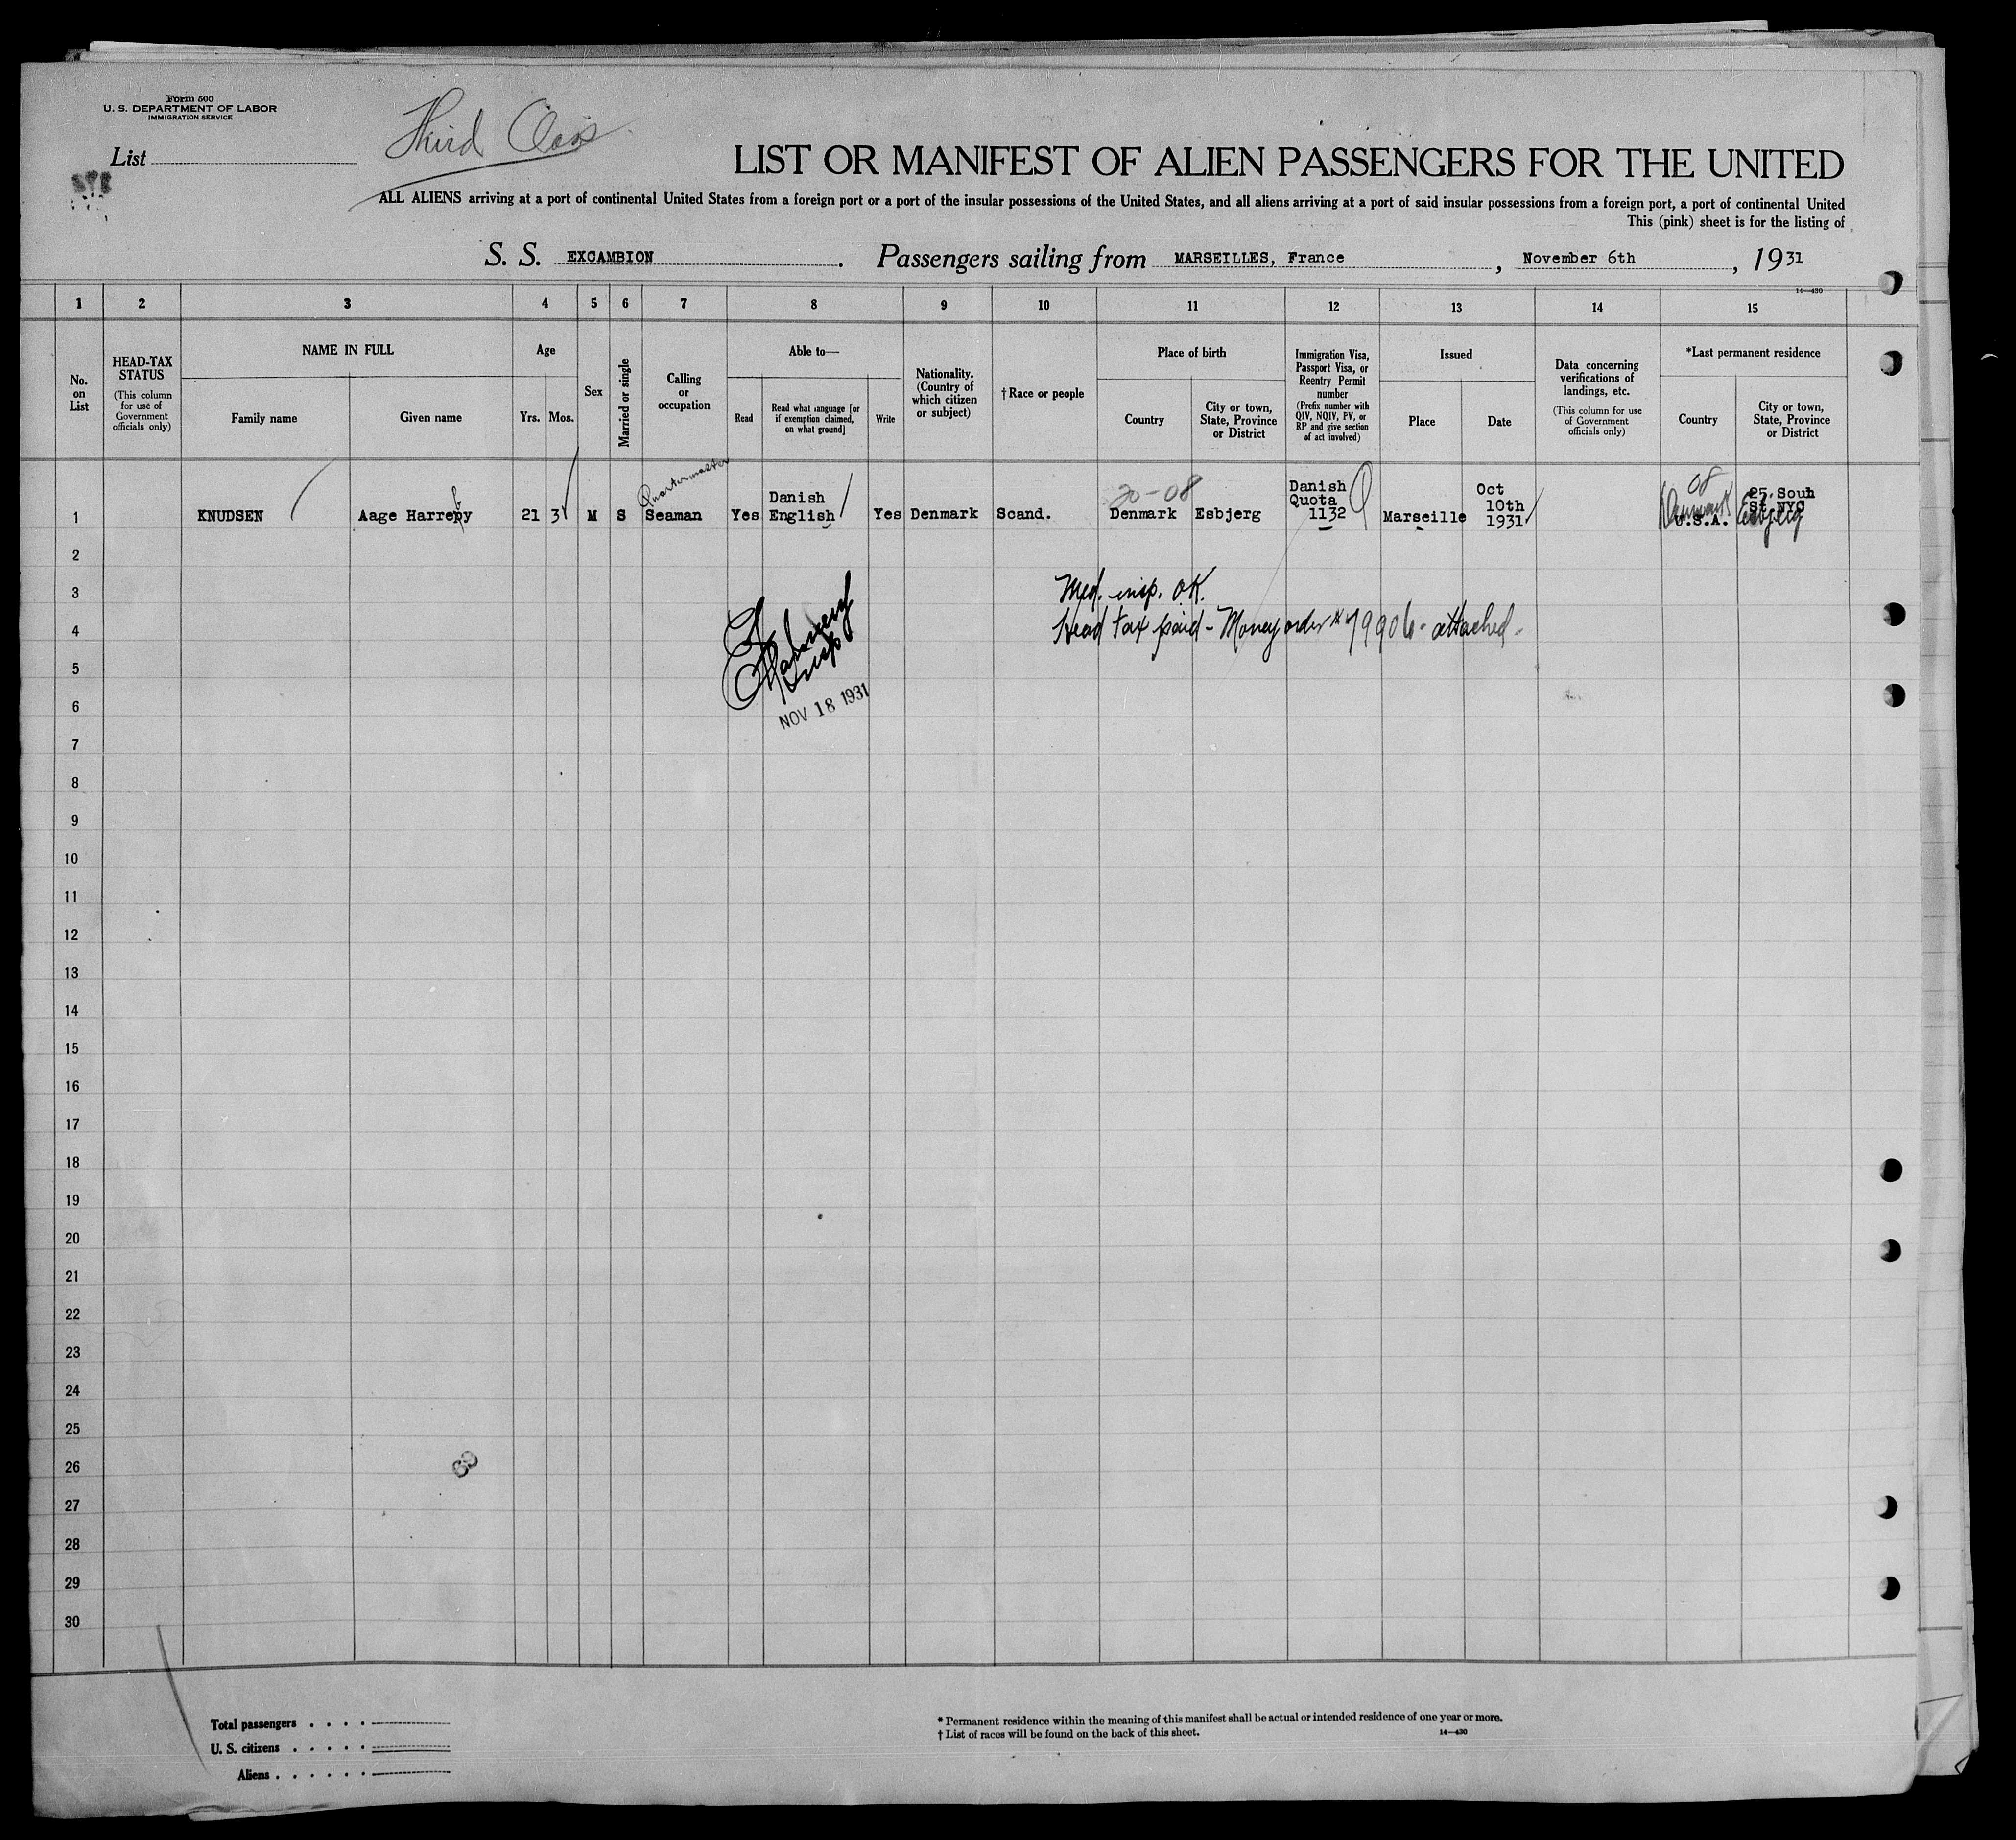 Form 500
U. S. DEPARTMENT OF LABOR
IMMIGRATION SERVICE
List
Third Class
LIST OR MANIFEST OF ALIEN PASSENGERS FOR THE UNITED
ALL ALIENS arriving at a port of continental United States from a foreign port or a port of the insular possessions of the United States, and all aliens arriving at a port of said insular possessions from a foreign port, a port of continental United
This (pink) sheet is for the listing of
S. S. EXCAMBION. Passengers sailing from MARSEILLES, France, November 6th, 1931
14—430
1 2 3 4 5 6 7 8 9 10 11 12 13 14 15
No. on List
HEAD-TAX STATUS
(This column for use of Government officials only)
NAME IN FULL
Family name
Given name
Age
Yrs. Mos.
Sex
Married or single
Calling or occupation
Able to—
Read
Read what language [or if exemption claimed, on what ground]
Write
Nationality. (Country of which citizen or subject)
†Race or people
Place of birth
Country
City or town, State, Province or District
Immigration Visa, Passport Visa, or Reentry Permit number
(Prefix number with QIV, NQIV, PV, or RP and give section of act involved)
Issued
Place
Date
Data concerning verifications of landings, etc.
(This column for use of Government officials only)
*Last permanent residence
Country
City or town, State, Province or District
1 KNUDSEN Aage Harreby 21 3 M S Quartermaster Seaman Yes Danish English Yes Denmark Scand. 20-08 Denmark Esbjerg Danish Quota 1132 Marseille Oct 10th 1931 08 Denmark U.S.A. 25 Souh St NYC Esbjerg
2
3 Med. insp. OK.
4 Head tax paid - Money order # 79906 - attached.
5
6
NOV 18 1931
7
8
9
10
11
12
13
14
15
16
17
18
19
20
21
22
23
24
25
26
27
28
29
30
Total passengers
U. S. citizens
Aliens
* Permanent residence within the meaning of this manifest shall be actual or intended residence of one year or more.
† List of races will be found on the back of this sheet.
14—430